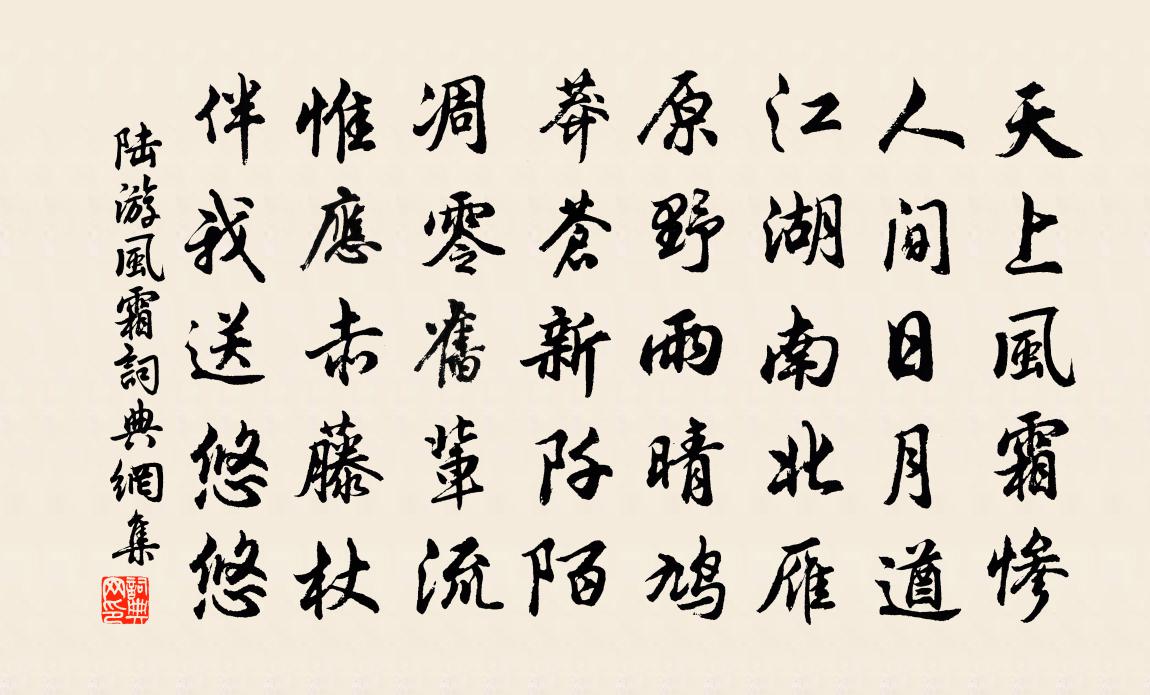 天上風霜慘
人間日月遒
江湖南北雁
原野雨晴鳩
莽蒼新阡陌
凋零舊輩流
惟應赤藤杖
伴我送悠悠
陆游風霜詞典網集
詞典网印